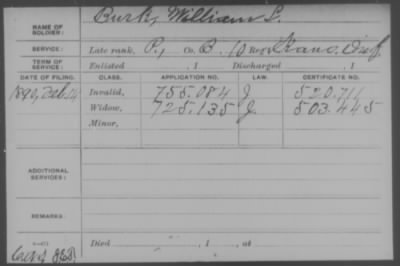 NAME OF SOLDIER: Burk, William L.
SERVICE: Late rank, P, Co. B, 10 Reg't Kans. Inf.
TERM OF SERVICE: Enlisted , 1 Discharged , 1
DATE OF FILING. CLASS. APPLICATION NO. LAW. CERTIFICATE NO.
1890, Invalid, 755.084 J. 520.711
Widow, 725.135 J. 503.445
Minor,
ADDITIONAL SERVICES:
REMARKS:
Died , 1 , at